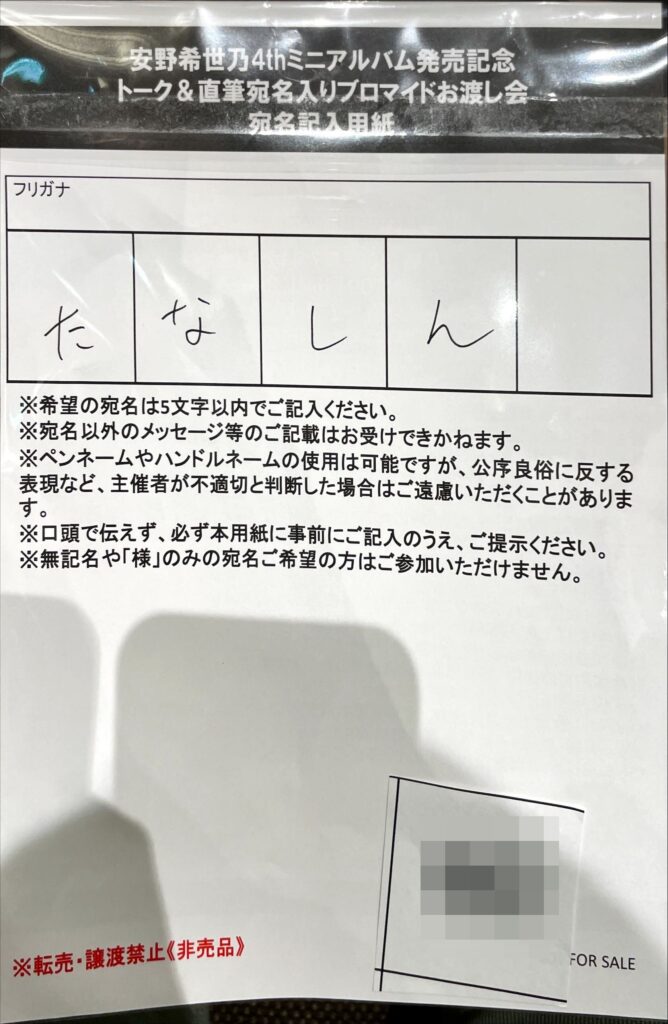 安野希世乃4thミニアルバム発売記念
トーク＆直筆宛名入りブロマイドお渡し会
宛名記入用紙
フリガナ
たなしん
※希望の宛名は5文字以内でご記入ください。
※宛名以外のメッセージ等のご記載はお受けできかねます。
※ペンネームやハンドルネームの使用は可能ですが、公序良俗に反する
表現など、主催者が不適切と判断した場合はご遠慮いただくことがありま
す。
※口頭で伝えず、必ず本用紙に事前にご記入のうえ、ご提示ください。
※無記名や「様」のみの宛名ご希望の方はご参加いただけません。
※転売・譲渡禁止《非売品》
FOR SALE